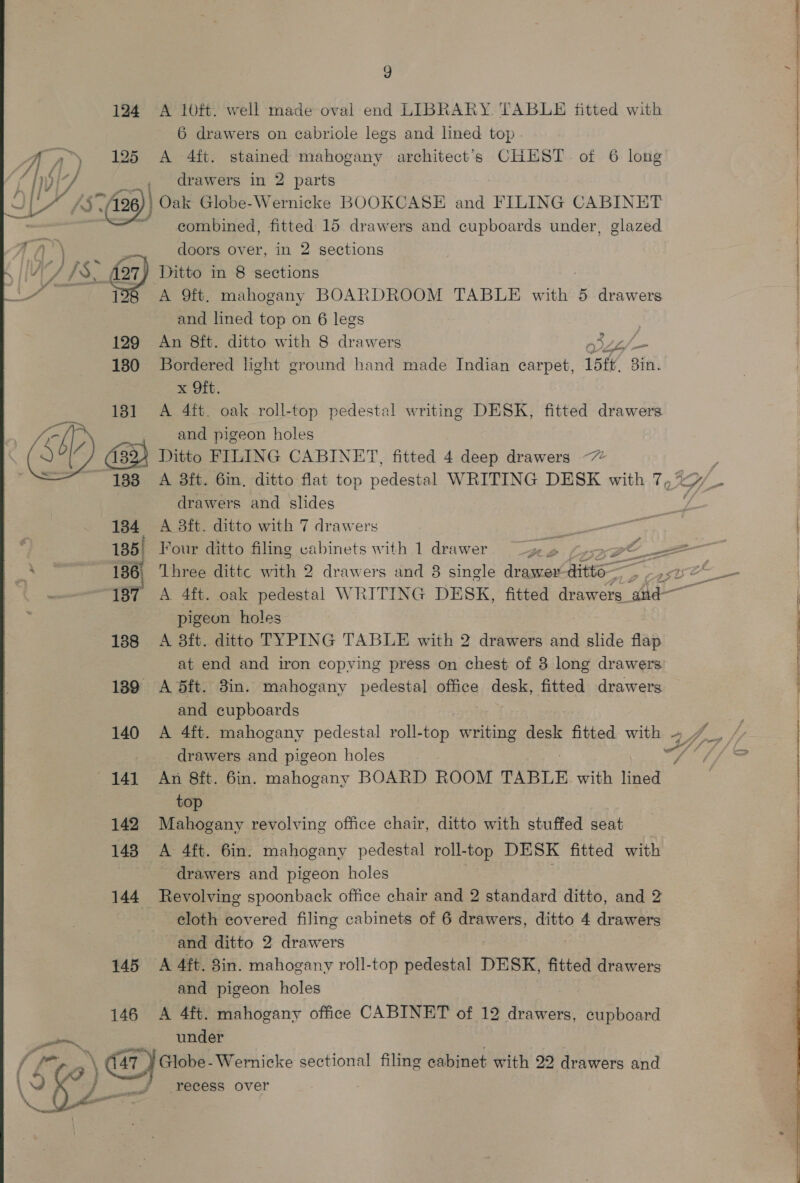 9
124 A 10ft. well made oval end LIBRARY TABLE fitted with
6 drawers on cabriole legs and lined top
125 A 4ft. stained mahogany architect's CHEST of 6 long
drawers in 2 parts
126 Oak Globe-Wernicke BOOKCASE and FILING CABINET
combined, fitted 15 drawers and cupboards under, glazed
doors over, in 2 sections
127 Ditto in 8 sections
128 A 9ft. mahogany BOARDROOM TABLE with 5 drawers
and lined top on 6 legs
129 An 8ft. ditto with 8 drawers
130 Bordered light ground hand made Indian carpet, 15ft. 3in.
x 9ft.
131 A 4ft. oak roll-top pedestal writing DESK, fitted drawers
and pigeon holes
132 Ditto FILING CABINET, fitted 4 deep drawers
133 A 3ft. 6in. ditto flat top pedestal WRITING DESK with 7
drawers and slides
134 A 3ft. ditto with 7 drawers
135 Four ditto filing cabinets with 1 drawer
136 Three ditto with 2 drawers and 3 single drawer ditto
137 A 4ft. oak pedestal WRITING DESK, fitted drawers and
pigeon holes
138 A 3ft. ditto TYPING TABLE with 2 drawers and slide flap
at end and iron copying press on chest of 3 long drawers
139 A 5ft. 3in. mahogany pedestal office desk, fitted drawers
and cupboards
140 A 4ft. mahogany pedestal roll-top writing desk fitted with
drawers and pigeon holes
141 An 8ft. 6in. mahogany BOARD ROOM TABLE with lined
top
142 Mahogany revolving office chair, ditto with stuffed seat
143 A 4ft. 6in. mahogany pedestal roll-top DESK fitted with
drawers and pigeon holes
144 Revolving spoonback office chair and 2 standard ditto, and 2
cloth covered filing cabinets of 6 drawers, ditto 4 drawers
and ditto 2 drawers
145 A 4ft. 3in. mahogany roll-top pedestal DESK, fitted drawers
and pigeon holes
146 A 4ft. mahogany office CABINET of 12 drawers, cupboard
under
147 Globe-Wernicke sectional filing cabinet with 22 drawers and
recess over